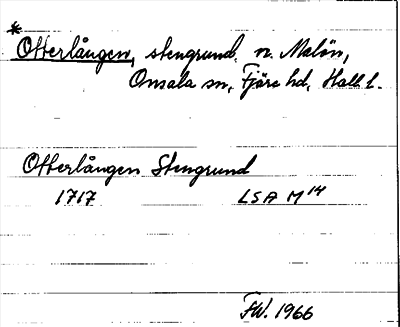 *
Otterlången, stengrund n. Malön,
Onsala sn, Fjäre hd, Hall l.
Otterlången Stengrund
1717 LSA M14
FW. 1966